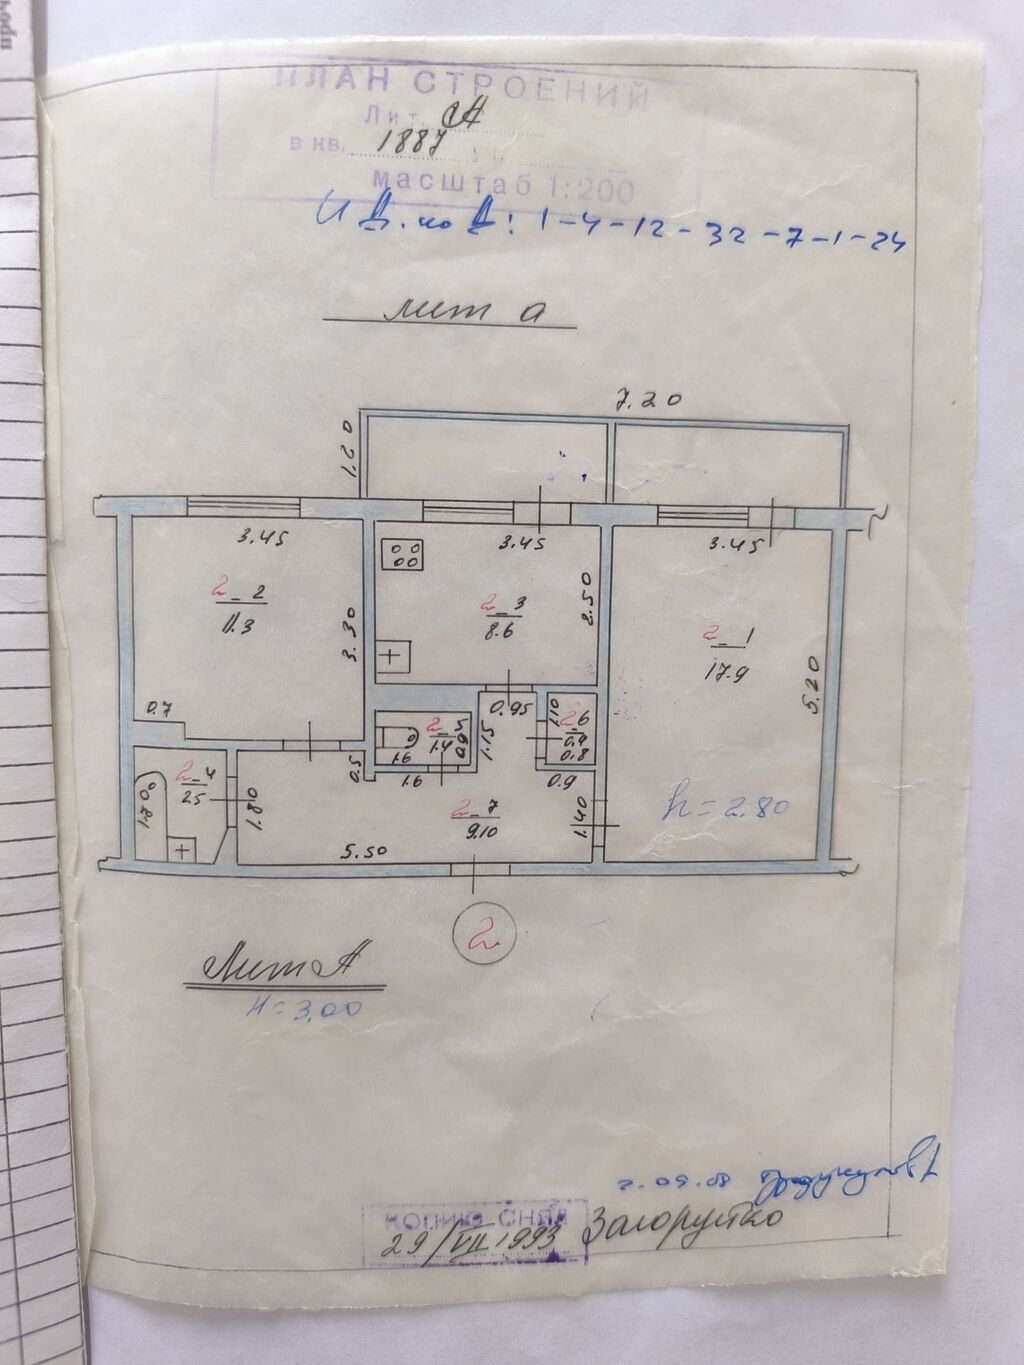 ПЛАН СТРОЕНИЙ
Лит. А
в кв. 1887 уч.
масштаб 1:200
И Д. код: 1-4-12-32-7-1-24
лит а
7.20
1.20
3.45
3.45
3.45
2-2
11.3
3.30
2-3
8.6
2.50
2-1
17.9
5.20
0.7
0.95
1.10
2-6
0.9
0.8
2-5
1.4
0.95
1.15
1.6
0.5
1.6
0.9
2-4
2.5
1.80
2-7
9.10
1.40
h=2.80
5.50
2
Лит А
H=3.00
2.09.08
КОПИЮ СНЯЛ
29/VII 1993 Загоруйко